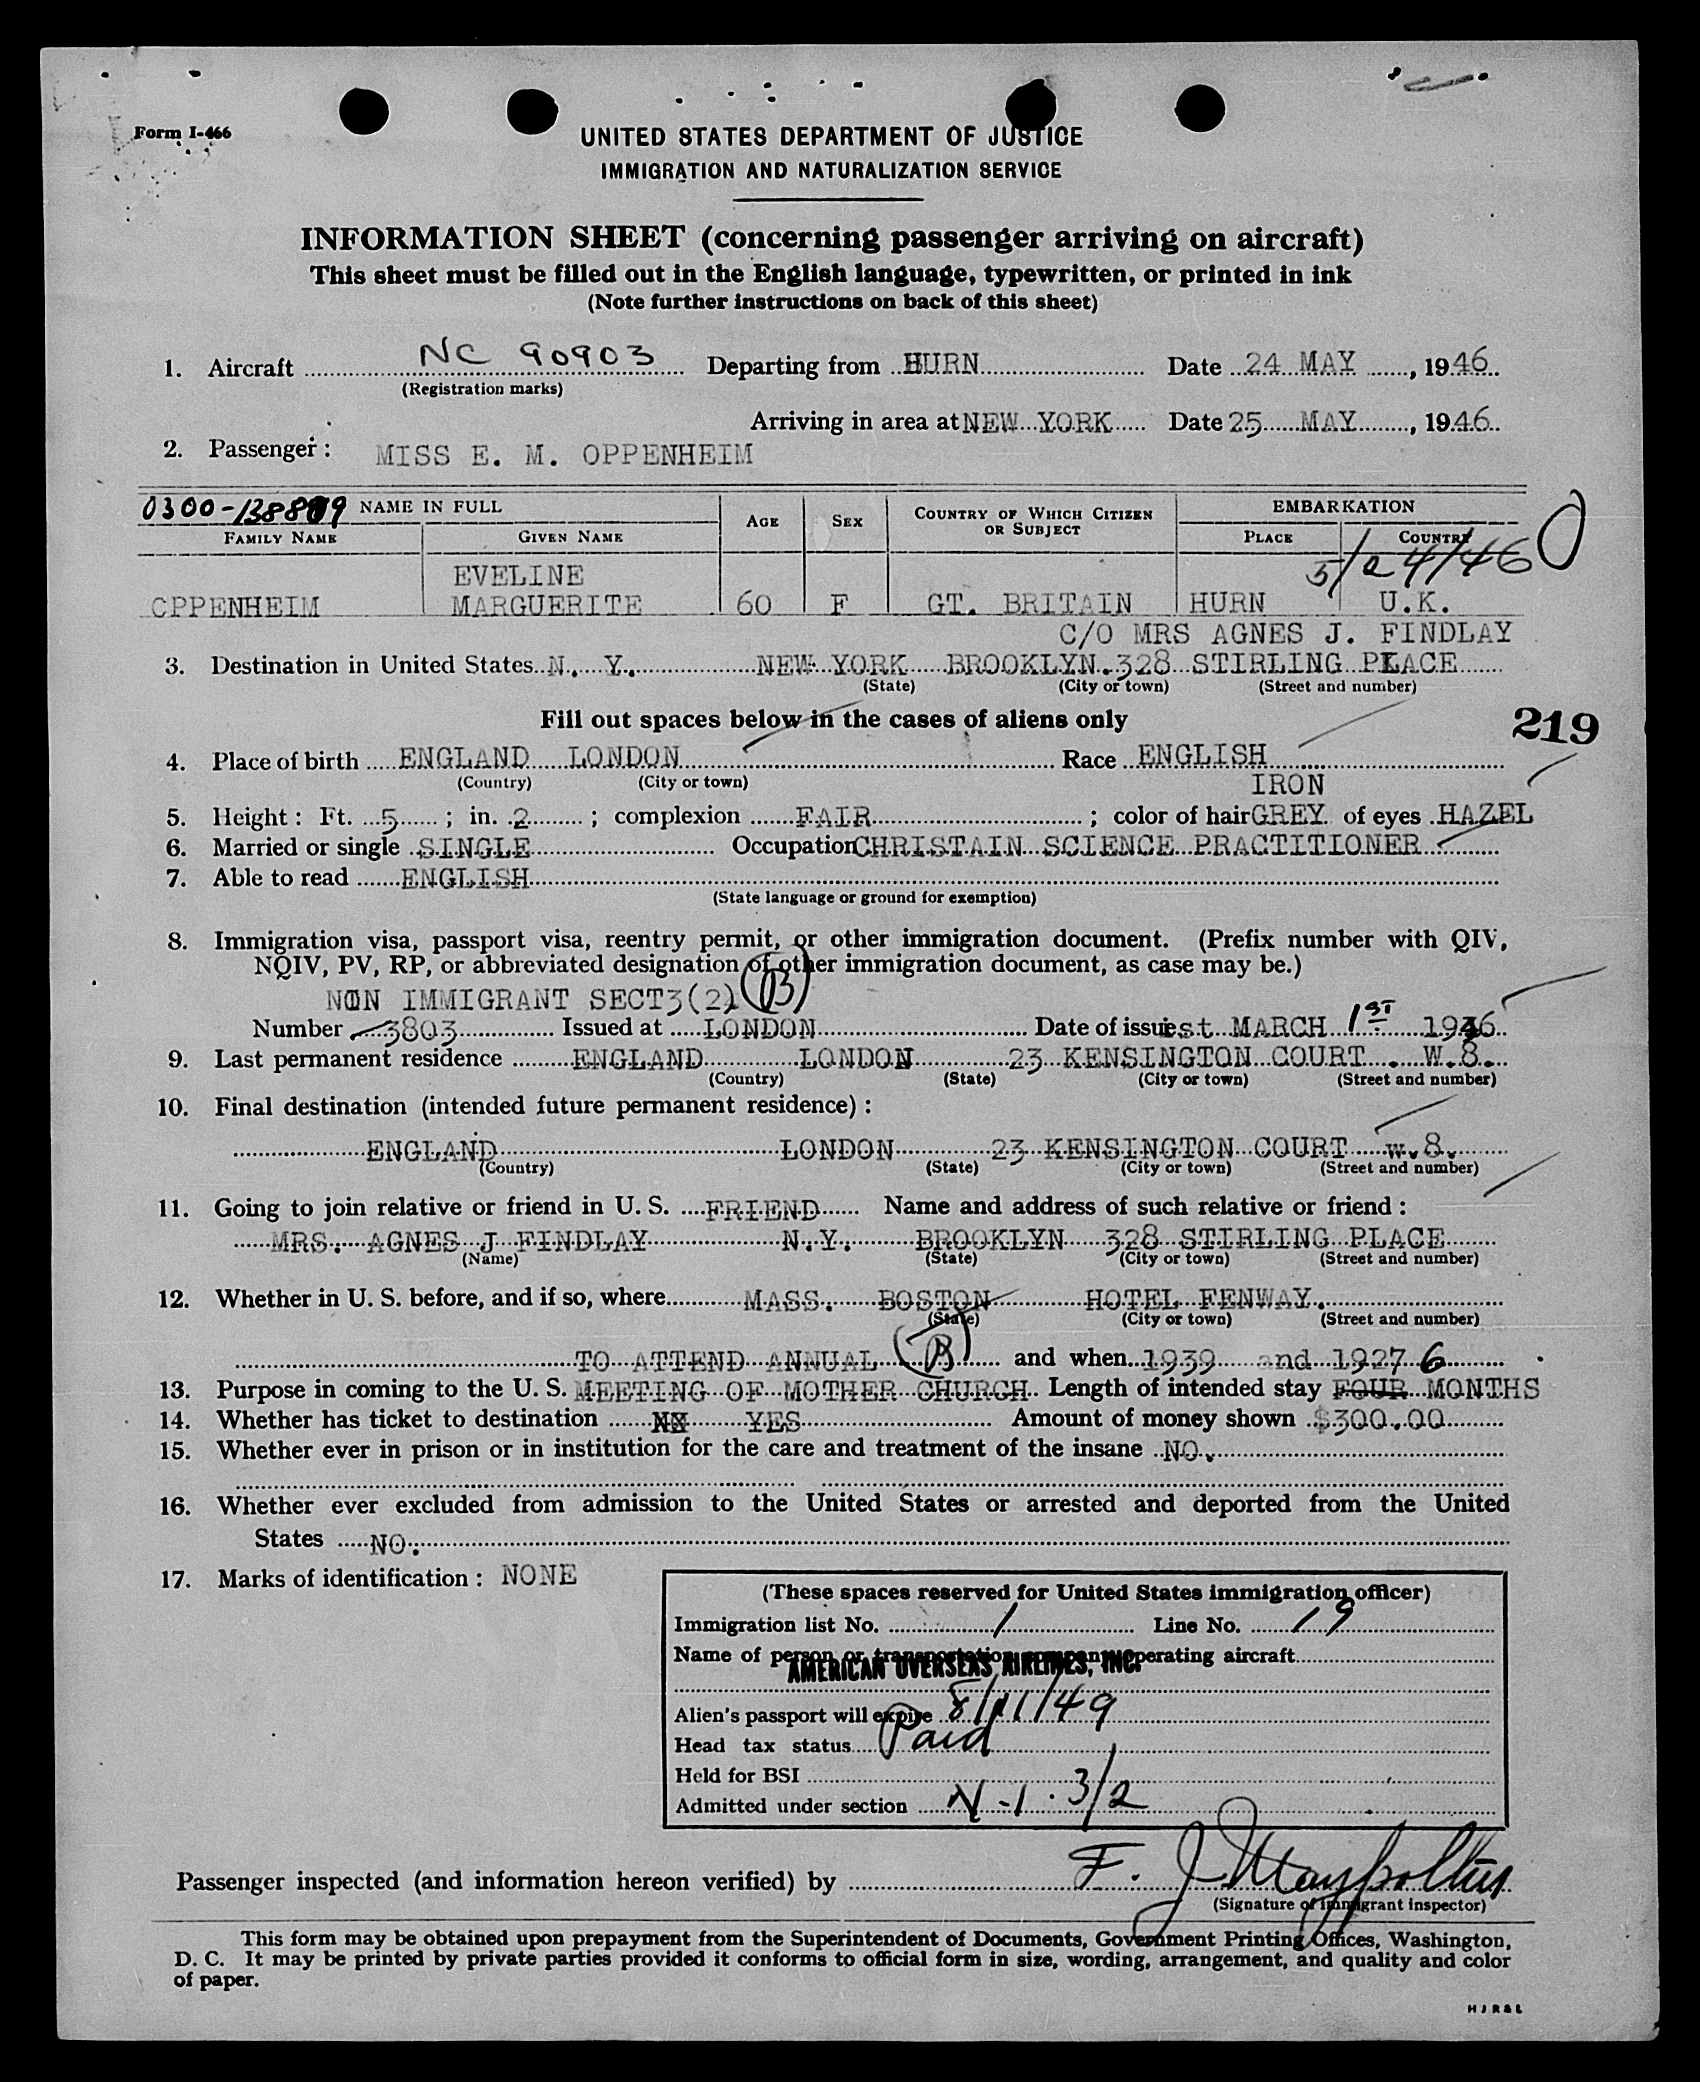 Form I-466
UNITED STATES DEPARTMENT OF JUSTICE
IMMIGRATION AND NATURALIZATION SERVICE
INFORMATION SHEET (concerning passenger arriving on aircraft)
This sheet must be filled out in the English language, typewritten, or printed in ink
(Note further instructions on back of this sheet)
1. Aircraft NC 90903 Departing from HURN Date 24 MAY, 1946
(Registration marks)
Arriving in area at NEW YORK Date 25 MAY, 1946
2. Passenger: MISS E. M. OPPENHEIM
0300- NAME IN FULL AGE SEX COUNTRY OF WHICH CITIZEN OR SUBJECT EMBARKATION
FAMILY NAME GIVEN NAME PLACE COUNTRY
5/24/46
EVELINE
OPPENHEIM MARGUERITE 60 F GT. BRITAIN HURN U.K.
C/O MRS AGNES J. FINDLAY
3. Destination in United States N. Y. NEW YORK BROOKLYN. 328 STIRLING PLACE
(State) (City or town) (Street and number)
Fill out spaces below in the cases of aliens only
219
4. Place of birth ENGLAND LONDON Race ENGLISH
(Country) (City or town) IRON
5. Height: Ft. 5; in. 2; complexion FAIR; color of hair GREY of eyes HAZEL
6. Married or single SINGLE Occupation CHRISTAIN SCIENCE PRACTITIONER
7. Able to read ENGLISH
(State language or ground for exemption)
8. Immigration visa, passport visa, reentry permit, or other immigration document. (Prefix number with QIV,
NQIV, PV, RP, or abbreviated designation of other immigration document, as case may be.)
NON IMMIGRANT SECT3(2) B
Number 3803 Issued at LONDON Date of issue 1st MARCH 1st 1946
9. Last permanent residence ENGLAND LONDON 23 KENSINGTON COURT. W.8.
(Country) (State) (City or town) (Street and number)
10. Final destination (intended future permanent residence):
ENGLAND LONDON 23 KENSINGTON COURT w.8.
(Country) (State) (City or town) (Street and number)
11. Going to join relative or friend in U. S. FRIEND Name and address of such relative or friend:
MRS. AGNES J FINDLAY N.Y. BROOKLYN 328 STIRLING PLACE
(Name) (State) (City or town) (Street and number)
12. Whether in U. S. before, and if so, where MASS. BOSTON HOTEL FENWAY.
(State) (City or town) (Street and number)
TO ATTEND ANNUAL B and when 1939 and 1927 6
13. Purpose in coming to the U. S. MEETING OF MOTHER CHURCH. Length of intended stay FOUR MONTHS
14. Whether has ticket to destination YES Amount of money shown $300.00
15. Whether ever in prison or in institution for the care and treatment of the insane NO.
16. Whether ever excluded from admission to the United States or arrested and deported from the United
States NO.
17. Marks of identification: NONE
(These spaces reserved for United States immigration officer)
Immigration list No. 1 Line No. 19
Name of person or transportation company operating aircraft
AMERICAN OVERSEAS AIRLINES, INC.
Alien's passport will expire 8/11/49
Head tax status Paid
Held for BSI
Admitted under section N-1. 3/2
Passenger inspected (and information hereon verified) by F. J.
(Signature of immigrant inspector)
This form may be obtained upon prepayment from the Superintendent of Documents, Government Printing Offices, Washington,
D. C. It may be printed by private parties provided it conforms to official form in size, wording, arrangement, and quality and color
of paper.
H J R & L